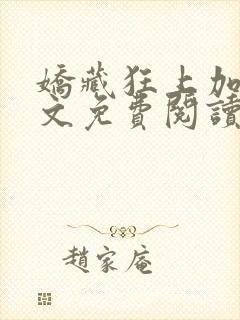 嬌藏狂上加
文免費閱讀
趙家庵